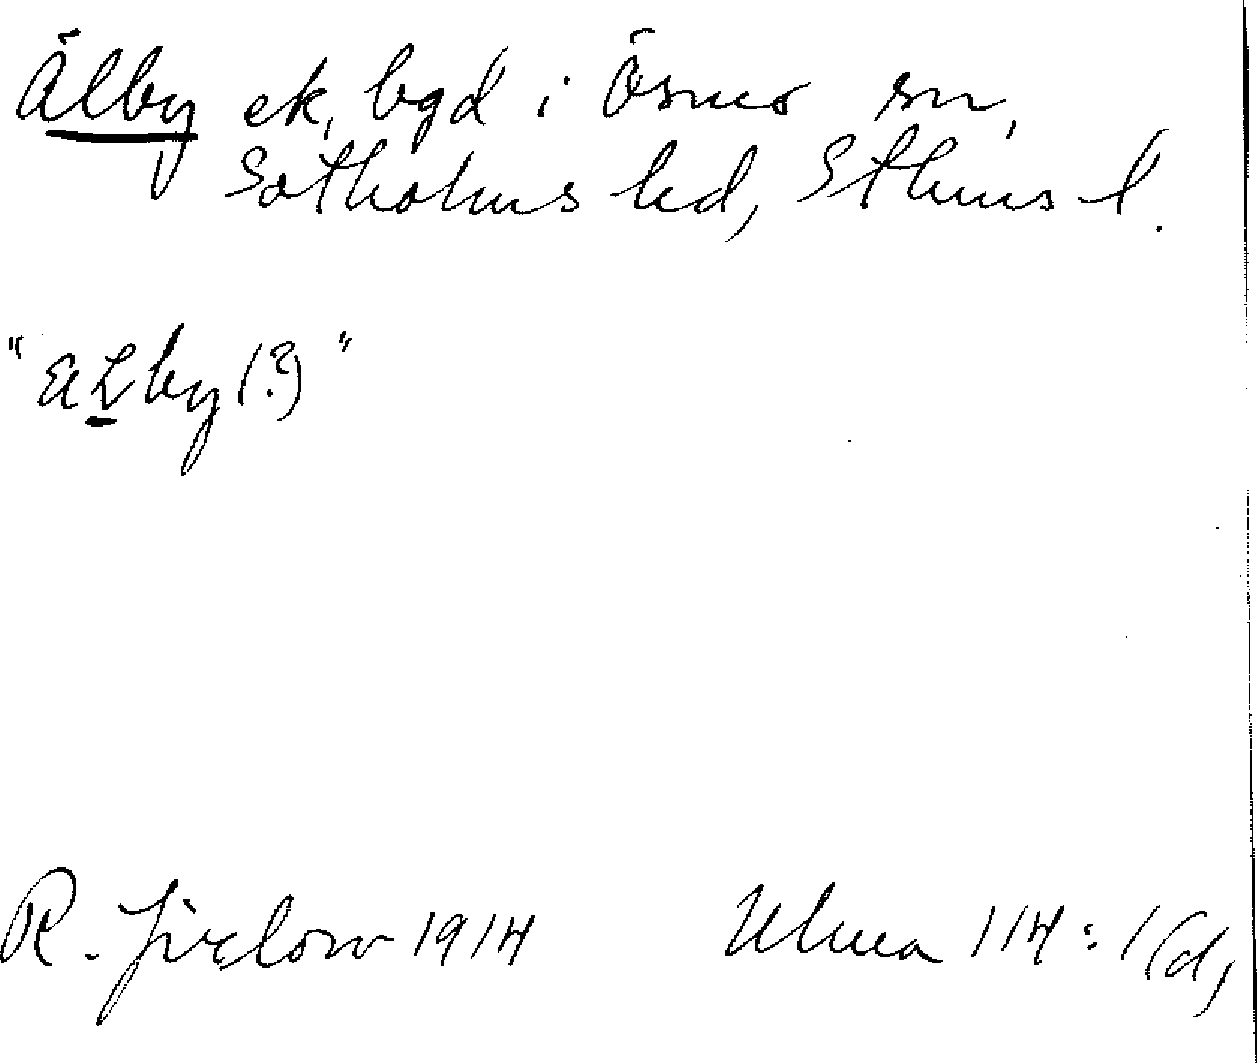 Älby ek, bgd i Ösmo sn,
Sotholms hd, Sthms l.
"ɑLby (?)"
R. Jirlow 1914
Ulma 114:1(d)